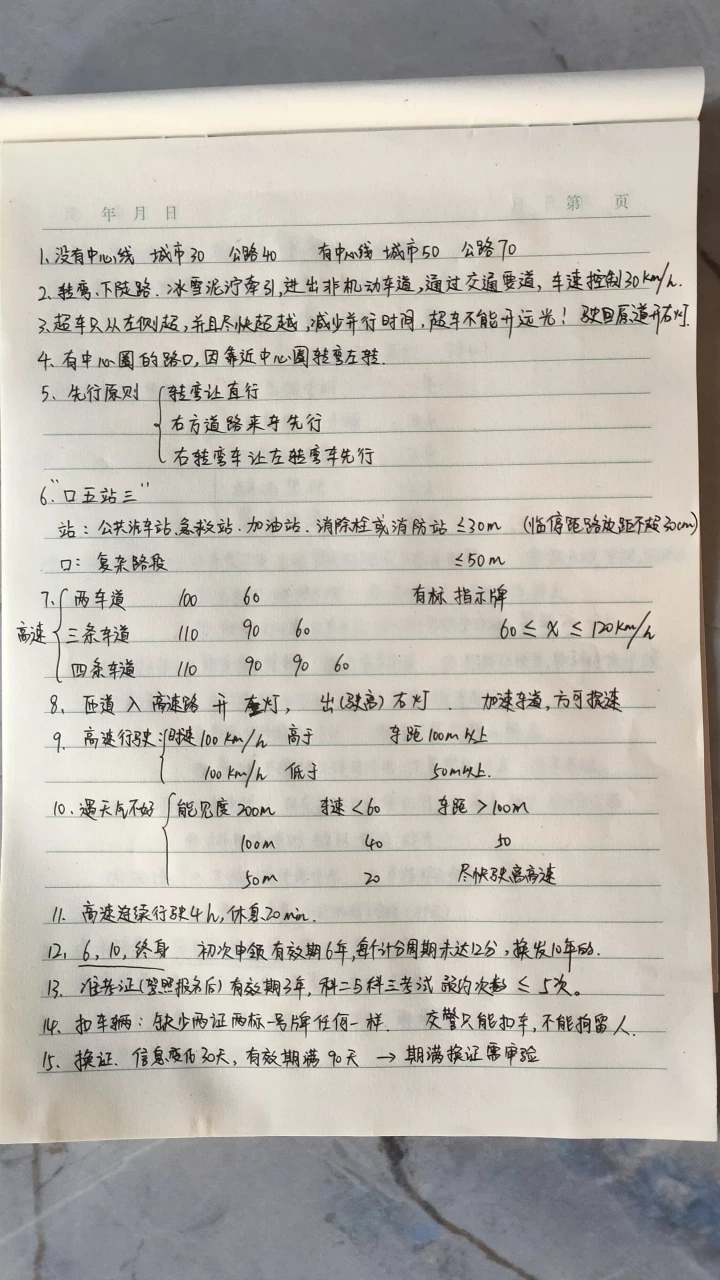 年 月 日 第 页
1、没有中心线 城市30 公路40 有中心线 城市50 公路70
2、转弯、下陡路、冰雪泥泞牵引,进出非机动车道,通过交通要道,车速控制30km/h.
3、超车只从左侧超,并且尽快超越,减少并行时间,超车不能开远光! 驶回原道开右灯.
4、有中心圈的路口,因靠近中心圈转弯左转.
5、先行原则 转弯让直行
右方道路来车先行
右转弯车让左转弯车先行
6."口五站三"
站:公共汽车站.急救站.加油站.消除栓或消防站 ≤30m (临停距路边距不超30cm)
口:复杂路段 ≤50m
7、两车道 100 60 有标 指示牌
高速 三条车道 110 90 60 60 ≤ x ≤ 120km/h
四条车道 110 90 90 60
8、匝道入高速路开左灯, 出(驶离)右灯. 加速车道,方可提速
9、高速行驶:时速100km/h 高于 车距100m以上
100km/h 低于 50m以上.
10、遇天气不好 能见度200m 车速<60 车距>100m
100m 40 50
50m 20 尽快驶离高速
11. 高速连续行驶4h,休息20min.
12、6,10,终身 初次申领有效期6年,每个计分周期未达12分,换发10年的.
13、准考证(驾照报名后)有效期3年,科二与科三考试 预约次数 ≤ 5次。
14、扣车辆:缺少两证两标一号牌任何一样. 交警只能扣车,不能拘留人.
15、换证. 信息变化30天,有效期满90天 → 期满换证需审验